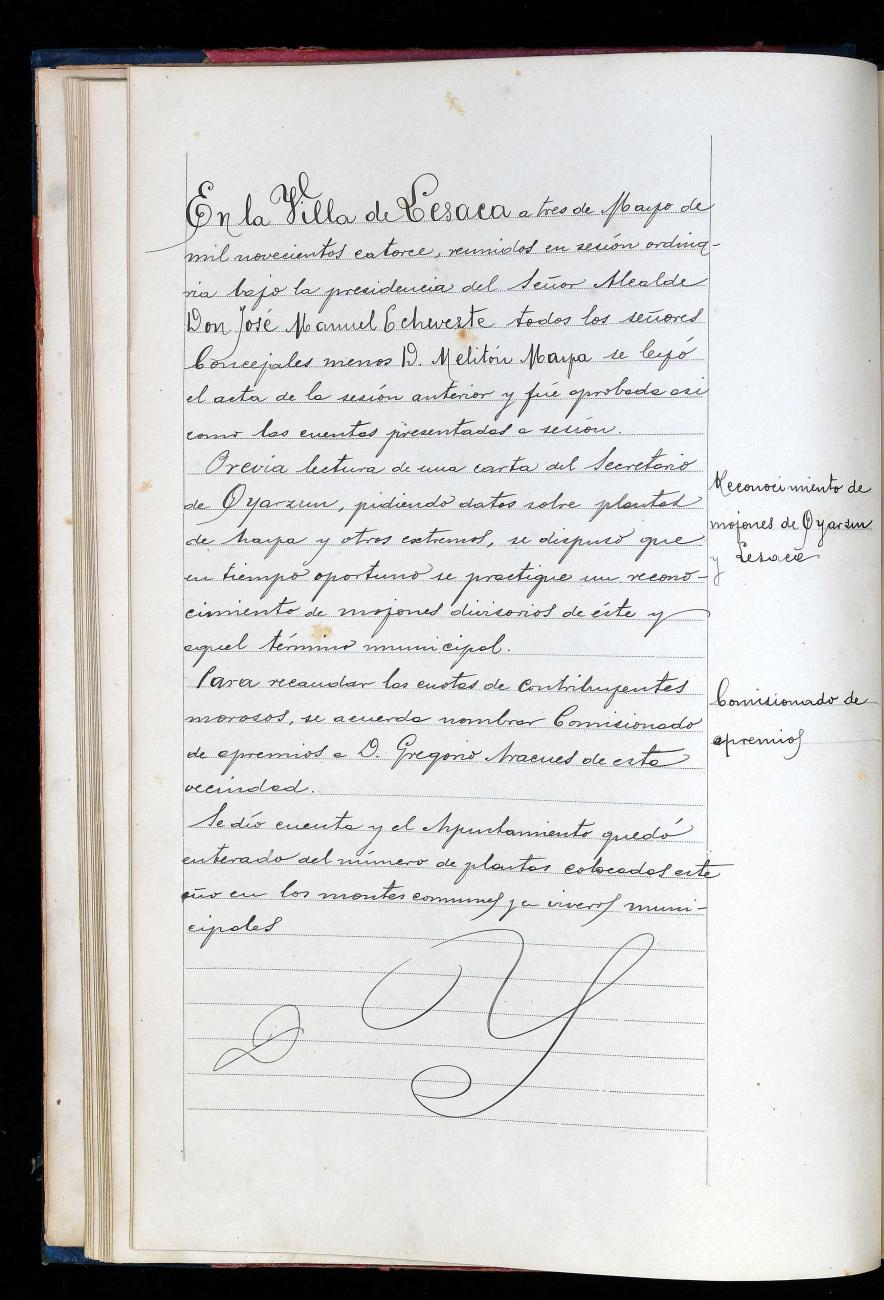 En la Villa de Lesaca a tres de Mayo de
mil novecientos catorce, reunidos en sesión ordina-
ria bajo la presidencia del Señor Alcalde
Don José Manuel Echeveste todos los señores
Concejales menos D. Melitón Maya se leyó
el acta de la sesión anterior y fué aprobada asi
como las cuentas presentadas a sesión.
Previa lectura de una carta del Secretario
de Oyarzun, pidiendo datos sobre plantas
de haya y otros extremos, se dispuso que
en tiempo oportuno se practique un recono-
cimiento de mojones divisorios de éste y
aquel término municipal.
Para recaudar las cuotas de contribuyentes
morosos, se acuerda nombrar Comisionado
de apremios a D. Gregorio Aracues de esta
vecindad.
Se dío cuenta y el Ayuntamiento quedó
enterado del número de plantas colocadas este
año en los montes comunes y en viveros muni-
cipales
Reconocimiento de
mojones de Oyarzun
y Lesaca
Comisionado de
apremios